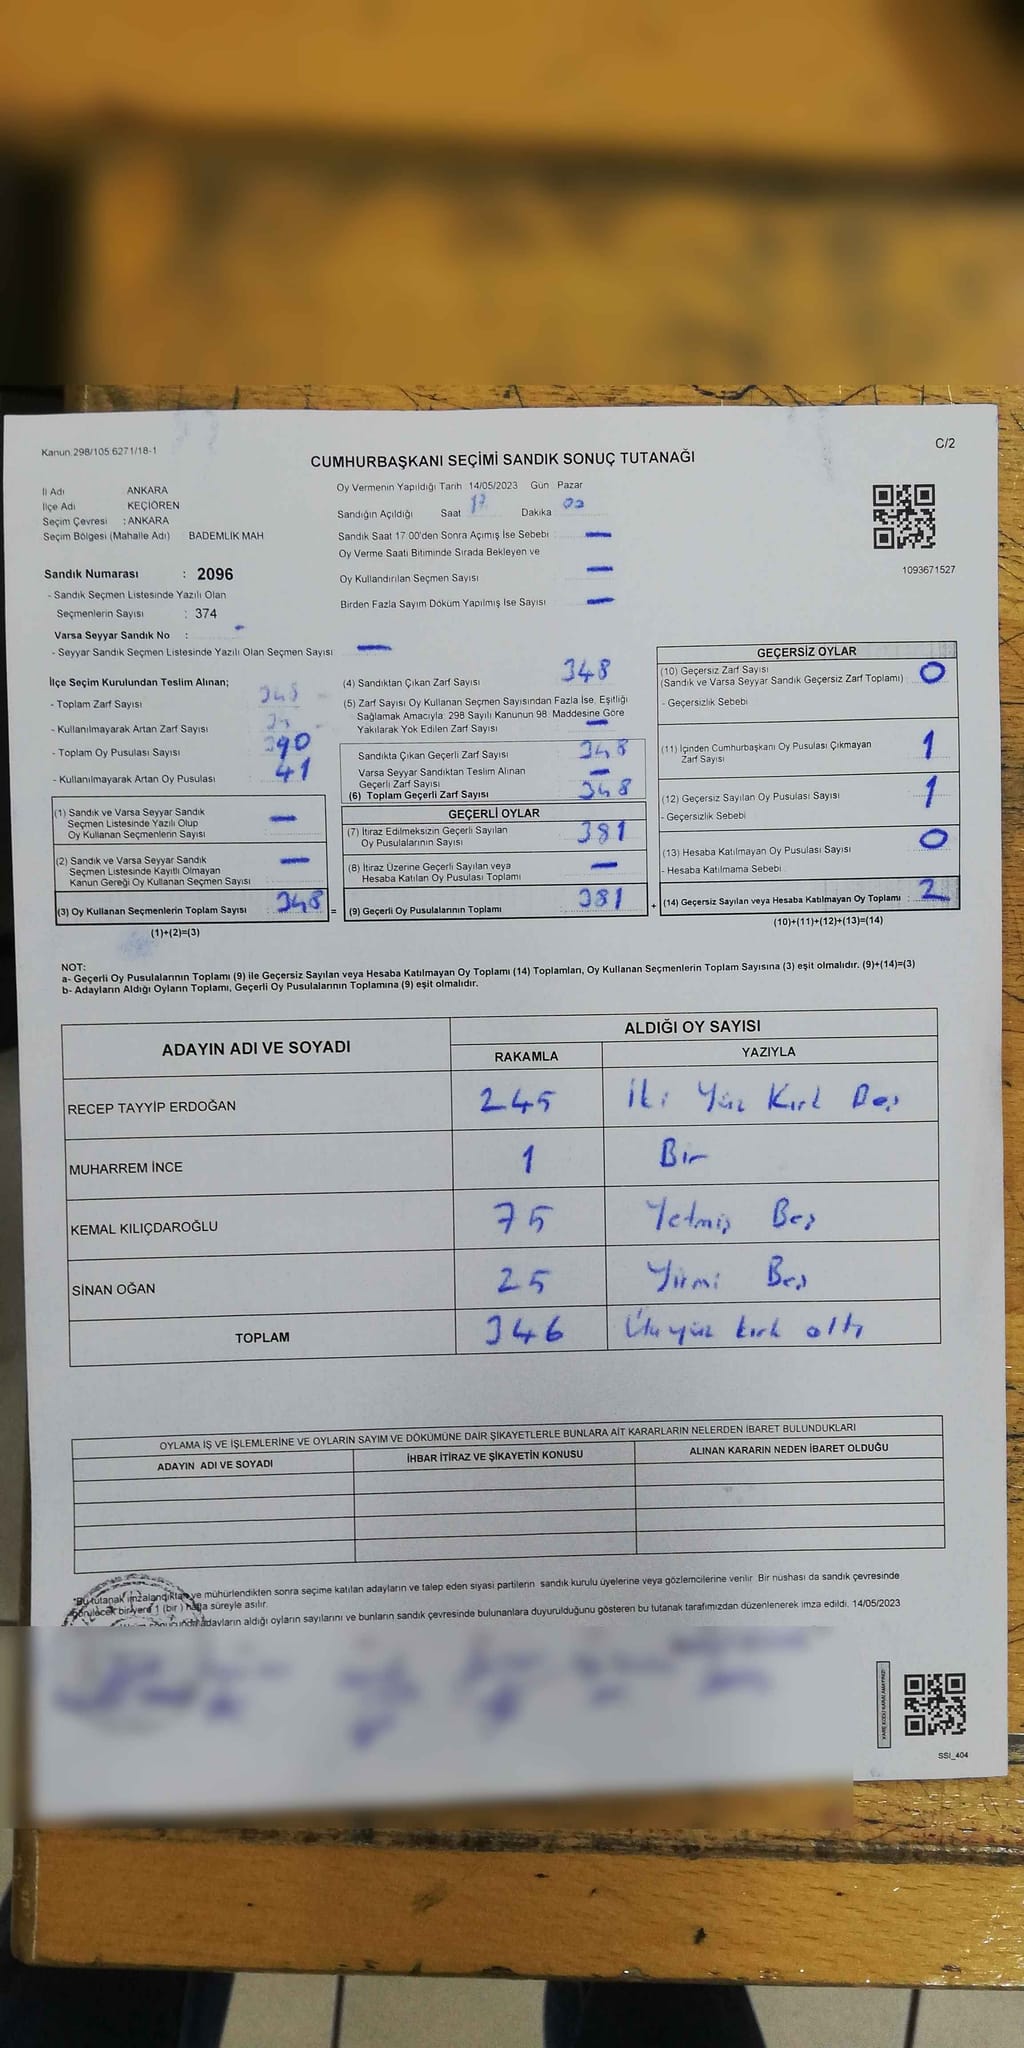 Kanun 298/105 6271/18-1
C/2
CUMHURBAŞKANI SEÇİMİ SANDIK SONUÇ TUTANAĞI
İl Adı ANKARA
İlçe Adı KEÇİÖREN
Seçim Çevresi : ANKARA
Seçim Bölgesi (Mahalle Adı) BADEMLİK MAH
Oy Vermenin Yapıldığı Tarih 14/05/2023 Gün Pazar
Sandığın Açıldığı Saat 17 Dakika 00
Sandık Saat 17 00'den Sonra Açımış İse Sebebi —
Oy Verme Saati Bitiminde Sırada Bekleyen ve
Oy Kullandırılan Seçmen Sayısı —
Birden Fazla Sayım Döküm Yapılmış İse Sayısı —
1093671527
Sandık Numarası : 2096
- Sandık Seçmen Listesinde Yazılı Olan
Seçmenlerin Sayısı : 374
Varsa Seyyar Sandık No : -
- Seyyar Sandık Seçmen Listesinde Yazılı Olan Seçmen Sayısı —
İlçe Seçim Kurulundan Teslim Alınan;
- Toplam Zarf Sayısı
- Kullanılmayarak Artan Zarf Sayısı
- Toplam Oy Pusulası Sayısı 390
- Kullanılmayarak Artan Oy Pusulası 41
(1) Sandık ve Varsa Seyyar Sandık
Seçmen Listesinde Yazılı Olup
Oy Kullanan Seçmenlerin Sayısı —
(2) Sandık ve Varsa Seyyar Sandık
Seçmen Listesinde Kayıtlı Olmayan
Kanun Gereği Oy Kullanan Seçmen Sayısı —
(3) Oy Kullanan Seçmenlerin Toplam Sayısı 348 =
(1)+(2)=(3)
(4) Sandıktan Çıkan Zarf Sayısı 348
(5) Zarf Sayısı Oy Kullanan Seçmen Sayısından Fazla İse, Eşitliği
Sağlamak Amacıyla: 298 Sayılı Kanunun 98. Maddesine Göre
Yakılarak Yok Edilen Zarf Sayısı —
Sandıkta Çıkan Geçerli Zarf Sayısı 348
Varsa Seyyar Sandıktan Teslim Alınan
Geçerli Zarf Sayısı —
(6) Toplam Geçerli Zarf Sayısı 348
GEÇERLİ OYLAR
(7) İtiraz Edilmeksizin Geçerli Sayılan
Oy Pusulalarının Sayısı 381
(8) İtiraz Üzerine Geçerli Sayılan veya
Hesaba Katılan Oy Pusulası Toplamı —
(9) Geçerli Oy Pusulalarının Toplamı 381 +
GEÇERSİZ OYLAR
(10) Geçersiz Zarf Sayısı
(Sandık ve Varsa Seyyar Sandık Geçersiz Zarf Toplamı) 0
- Geçersizlik Sebebi
(11) İçinden Cumhurbaşkanı Oy Pusulası Çıkmayan
Zarf Sayısı 1
(12) Geçersiz Sayılan Oy Pusulası Sayısı 1
- Geçersizlik Sebebi
(13) Hesaba Katılmayan Oy Pusulası Sayısı 0
- Hesaba Katılmama Sebebi
(14) Geçersiz Sayılan veya Hesaba Katılmayan Oy Toplamı : 2
(10)+(11)+(12)+(13)=(14)
NOT:
a- Geçerli Oy Pusulalarının Toplamı (9) ile Geçersiz Sayılan veya Hesaba Katılmayan Oy Toplamı (14) Toplamları, Oy Kullanan Seçmenlerin Toplam Sayısına (3) eşit olmalıdır. (9)+(14)=(3)
b- Adayların Aldığı Oyların Toplamı, Geçerli Oy Pusulalarının Toplamına (9) eşit olmalıdır.
ADAYIN ADI VE SOYADI ALDIĞI OY SAYISI
RAKAMLA YAZIYLA
RECEP TAYYİP ERDOĞAN 245 İki Yüz Kırk Beş
MUHARREM İNCE 1 Bir
KEMAL KILIÇDAROĞLU 75 Yetmiş Beş
SİNAN OĞAN 25 Yirmi Beş
TOPLAM 346 Üçyüz kırk altı
OYLAMA İŞ VE İŞLEMLERİNE VE OYLARIN SAYIM VE DÖKÜMÜNE DAİR ŞİKAYETLERLE BUNLARA AİT KARARLARIN NELERDEN İBARET BULUNDUKLARI
ADAYIN ADI VE SOYADI İHBAR İTİRAZ VE ŞİKAYETİN KONUSU ALINAN KARARIN NEDEN İBARET OLDUĞU
*Bu tutanak imzalandıktan ve mühürlendikten sonra seçime katılan adayların ve talep eden siyasi partilerin sandık kurulu üyelerine veya gözlemcilerine verilir Bir nüshası da sandık çevresinde
görülecek bir yere 1 (bir) hafta süreyle asılır.
adayların aldığı oyların sayılarını ve bunların sandık çevresinde bulunanlara duyurulduğunu gösteren bu tutanak tarafımızdan düzenlenerek imza edildi. 14/05/2023
SSI_404